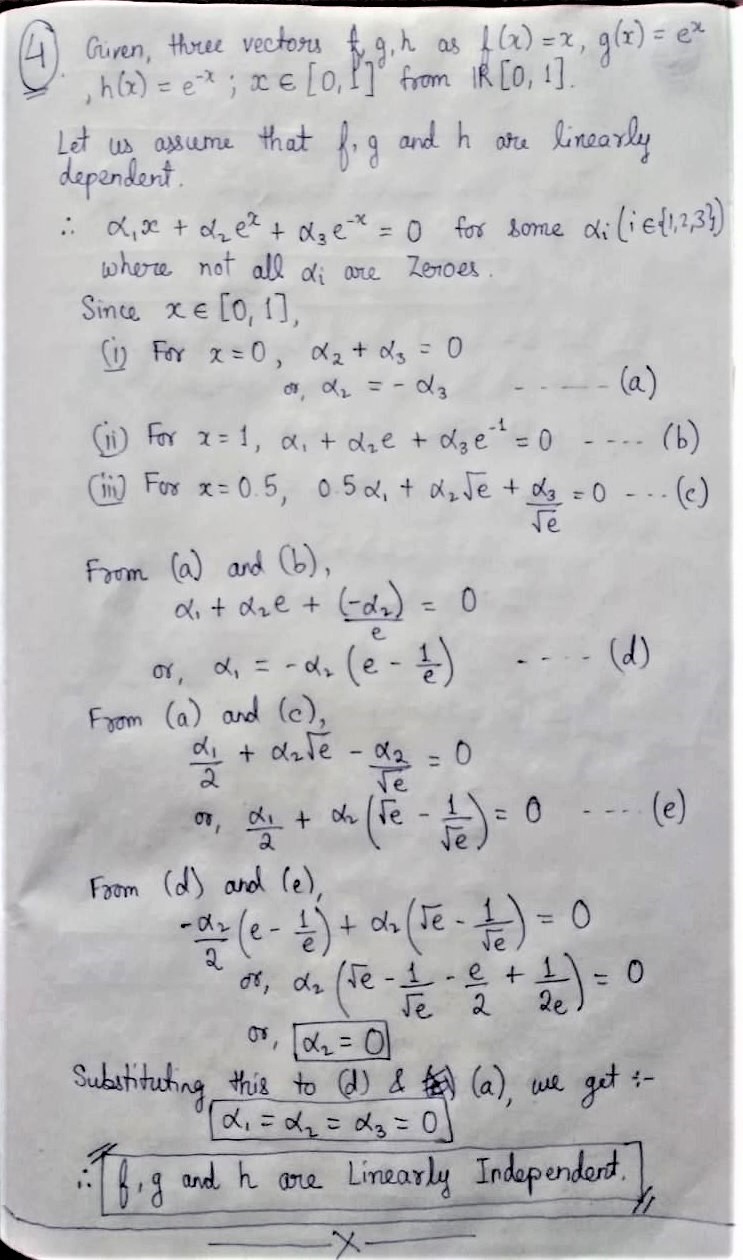 4. Given, three vectors f, g, h as f(x) = x, g(x) = eˣ
, h(x) = e⁻ˣ ; x ∈ [0, 1] from ℝ[0, 1].
Let us assume that f, g and h are linearly
dependent.
∴ α₁x + α₂eˣ + α₃e⁻ˣ = 0 for some αi (i ∈ {1,2,3})
where not all αi are Zeroes.
Since x ∈ [0, 1],
(i) For x = 0, α₂ + α₃ = 0
or, α₂ = - α₃ ----- (a)
(ii) For x = 1, α₁ + α₂e + α₃e⁻¹ = 0 ---- (b)
(iii) For x = 0.5, 0.5α₁ + α₂√e + α₃/√e = 0 --- (c)
From (a) and (b),
α₁ + α₂e + (-α₂)/e = 0
or, α₁ = -α₂ (e - 1/e) ---- (d)
From (a) and (c),
α₁/2 + α₂√e - α₂/√e = 0
or, α₁/2 + α₂ (√e - 1/√e) = 0 ---- (e)
From (d) and (e),
-α₂/2 (e - 1/e) + α₂ (√e - 1/√e) = 0
or, α₂ (√e - 1/√e - e/2 + 1/2e) = 0
or, α₂ = 0
Substituting this to (d) & (a), we get :-
α₁ = α₂ = α₃ = 0
∴ f, g and h are Linearly Independent.
X